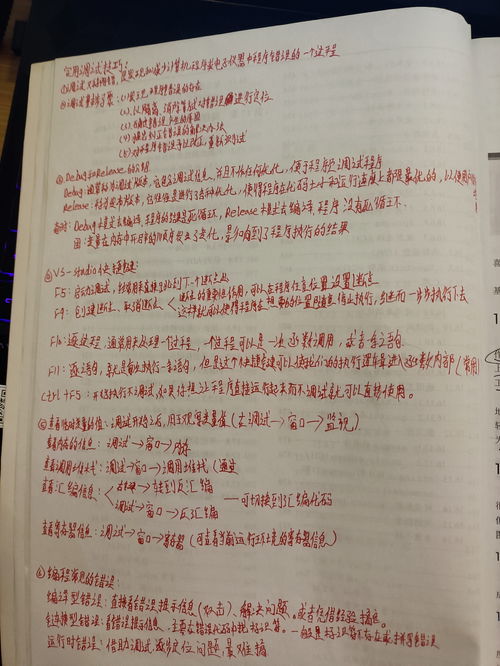 实用调试技巧:
①调试又称除错,是发现和减少计算机程序或电子仪器中程序错误的一个过程
②调试基本步骤:(1).发现程序错误的存在
(2).以隔离、消除等方式对错误进行定位
(3).确定错误产生的原因
(4).提出纠正错误的解决办法
(5).对程序错误予以改正,重新测试
③Debug和Release的介绍
Debug通常称为调试版本,它包含调试信息,并且不作任何优化,便于程序员调试程序
Release称为发布版本,它往往是进行了各种优化,使得程序在代码大小和运行速度上都是最优的,以便用户
Debug模式去编译,程序的结果是死循环,Release模式去编译,程序没有死循环.
因:变量在内存中开辟的顺序发生了变化,影响到了程序执行的结果
④VS-studio快捷键:
F5:启动调试,经常用来直接跳到下一个断点处
F9:创建断点、取消断点 断点的重要作用,可以在程序任意位置设置断点
这样就可以使得程序在想要的位置随意停止执行,继而一步步执行下去
F10:逐过程,通常用来处理一个过程,一个过程可以是一次函数调用,或者一条语句.
F11:逐语句,就是每次执行一条语句,但是这个快捷键可以使我们的执行逻辑进入函数内部(常用)
ctrl+F5:开始执行不调试,如果你想让程序直接运行起来而不调试就可以直接使用。
⑤查看临时变量的值:调试开始之后,用于观察变量值(在调试→窗口→监视).
查看内存的信息:调试→窗口→内存
查看调用堆栈:调试→窗口→调用堆栈
查看汇编信息: 右键→转到反汇编
调试→窗口→反汇编 —可切换到汇编代码
查看寄存器信息:调试→窗口→寄存器(可查看当前运行环境的寄存器信息)
⑥编程常见的错误:
编译型错误:直接看错误提示信息(双击)、解决问题.或者凭借经验搞定。
链接型错误:看错误提示信息,主要在错误代码中找标识符。一般是标识符不存在或拼写错误
运行时错误:借助调试,逐步定位问题,最难搞